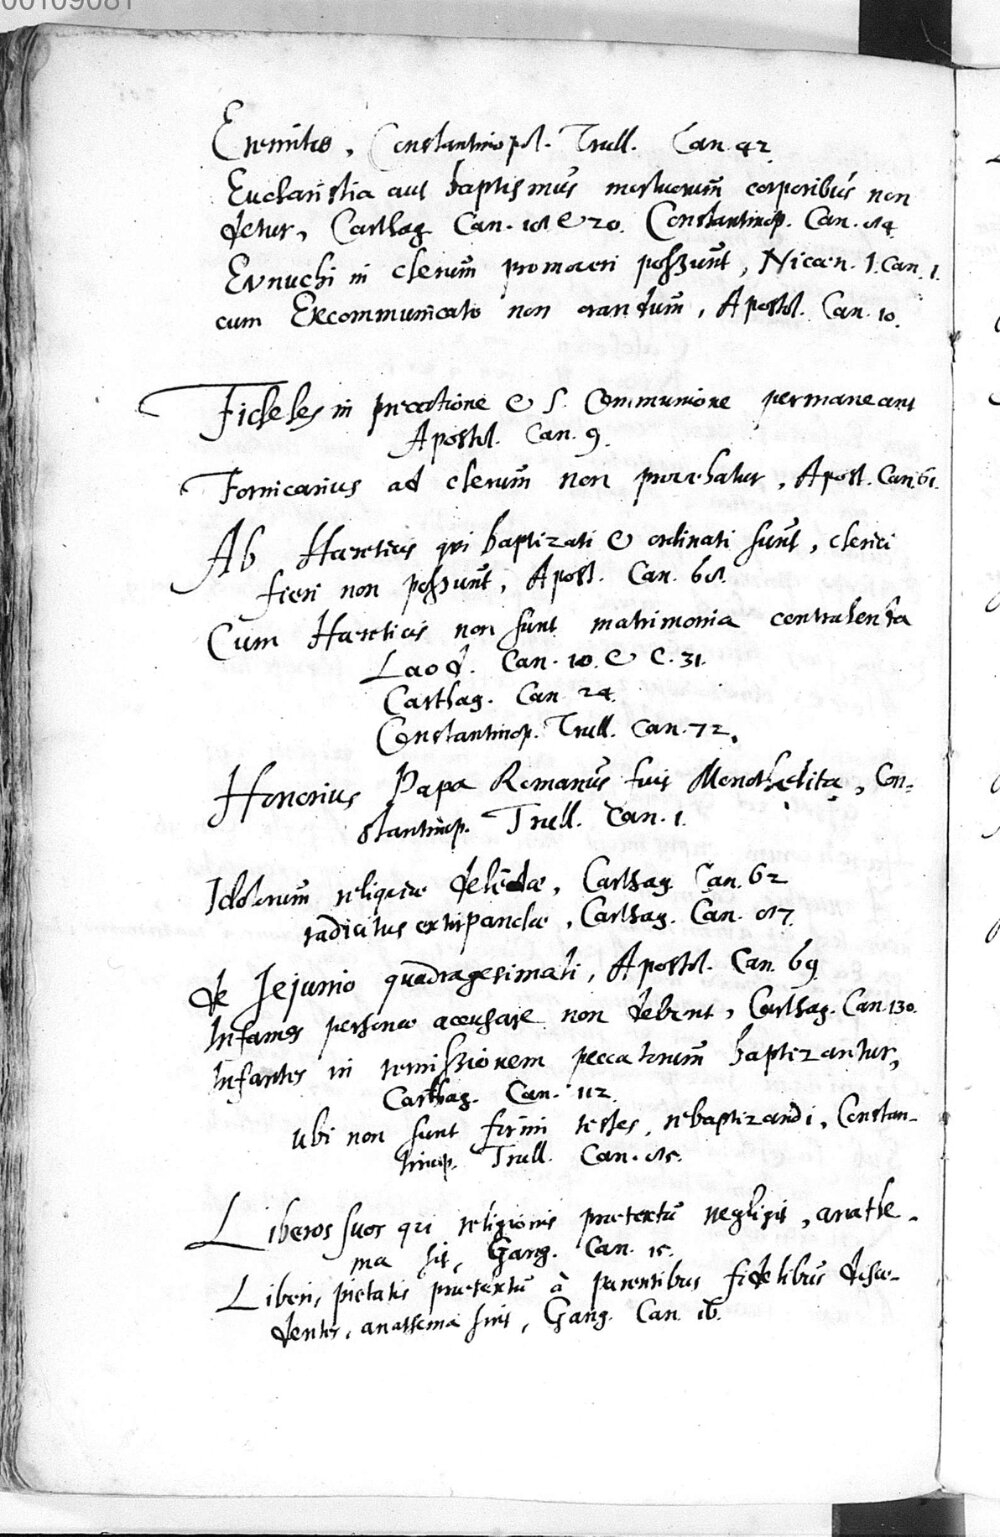 00109081
Eremitae, Constantinopol. Trull. Can. 42
Eucharistia aut baptismus mortuorum corporibus non
detur, Carthag. Can. 18 & 20. Constantinop. Can. 84
Eunuchi in clerum promoveri possunt, Nicaen. I. Can. 1.
cum Excommunicato non orandum, Apostol. Can. 10.
Fideles in precatione & S. Communione permaneant
Apostol. Can. 9.
Fornicarius ad clerum non provehatur, Apost. Can. 61.
Ab Haereticis qui baptizati & ordinati sunt, clerici
fieri non possunt, Apost. Can. 68.
Cum Haereticis non sunt matrimonia contrahenda
Laod. Can. 10. & C. 31.
Carthag. Can. 24.
Constantinop. Trull. Can. 72.
Honorius Papa Romanus fuit Monothelita, Con-
stantinop. Trull. Can. 1.
Idolorum reliquiae delendae, Carthag. Can. 62
radicitus extirpandae, Carthag. Can. 87.
de Jejunio quadragesimali, Apostol. Can. 69.
Infames personae accusare non debent, Carthag. Can. 130.
Infantes in remissionem peccatorum baptizantur,
Carthag. Can. 112.
Ubi non sunt firmi testes, rebaptizandi, Constan-
tinop. Trull. Can. 85.
Liberos suos qui religionis praetextu negligit, anathe-
ma sit, Gang. Can. 15.
Liberi, pietatis praetextu à parentibus fidelibus disce-
dentes, anathema sint, Gang. Can. 16.